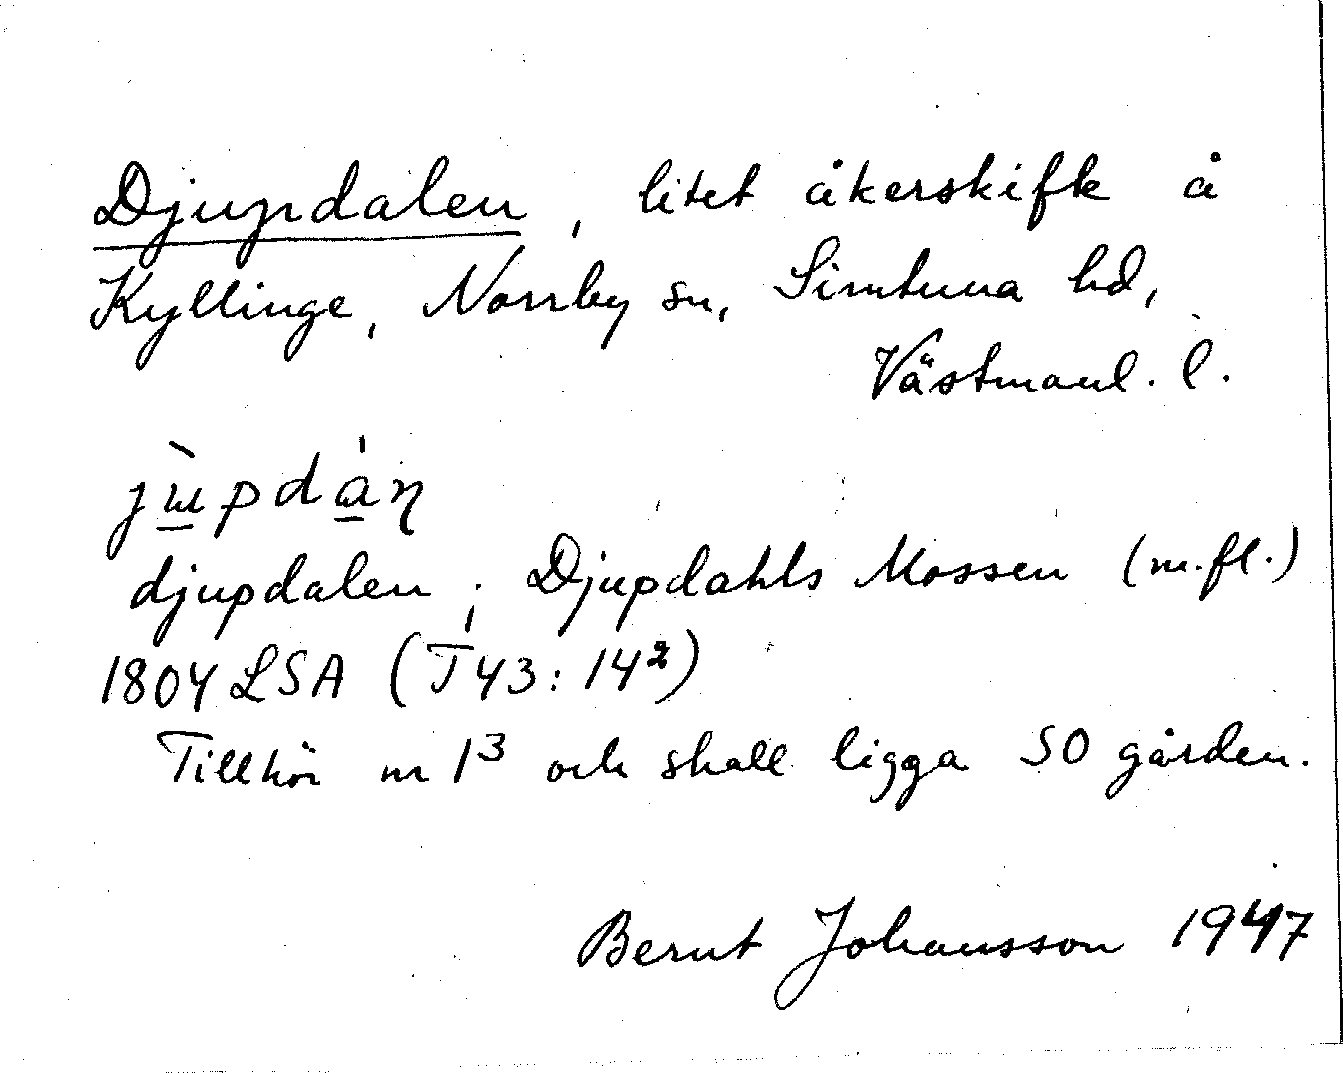 Djupdalen, litet åkerskifte å
Kyllinge, Norrby sn, Simtuna hd,
Västmanl. l.
jùpdán
djupdalen; Djupdahls Mossen (m.fl.)
1804 LSA (T43:14²)
Tillhör nr 1³ och skall ligga SO gården.
Bernt Johansson 1947